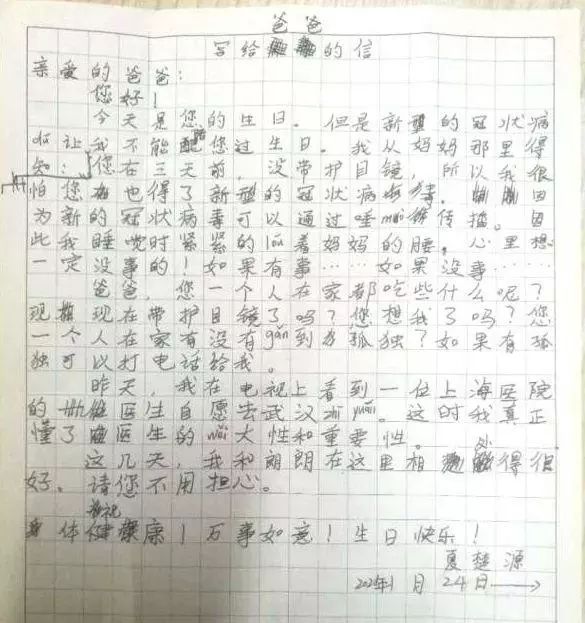 爸爸
写给的信
亲爱的爸爸：
您好！
今天是您的生日。但是新型的冠状病
让我不能陪您过生日。我从妈妈那里得
知：您在三天前，没带护目镜，所以我很
怕您也得了新型的冠状病毒。因
为新的冠状病毒可以通过唾传播。因
此我睡觉时紧紧的lǒu着妈妈的腰，心里想
一定没事的！如果有事……如果没事……
爸爸，您一个人在家都吃些什么呢？
现在带护目镜了吗？您想我了吗？您
一个人在家有没有gǎn到孤独？如果有孤
独可以打电话给我。
昨天，我在电视上看到一位上海医院
的医生自愿去武汉yuán。这时我真正
懂了医生的wěi大性和重要性。
这几天，我和朗朗在这里相处得很
好。请您不用担心。
祝
身体健康！万事如意！生日快乐！
夏楚源
月24日